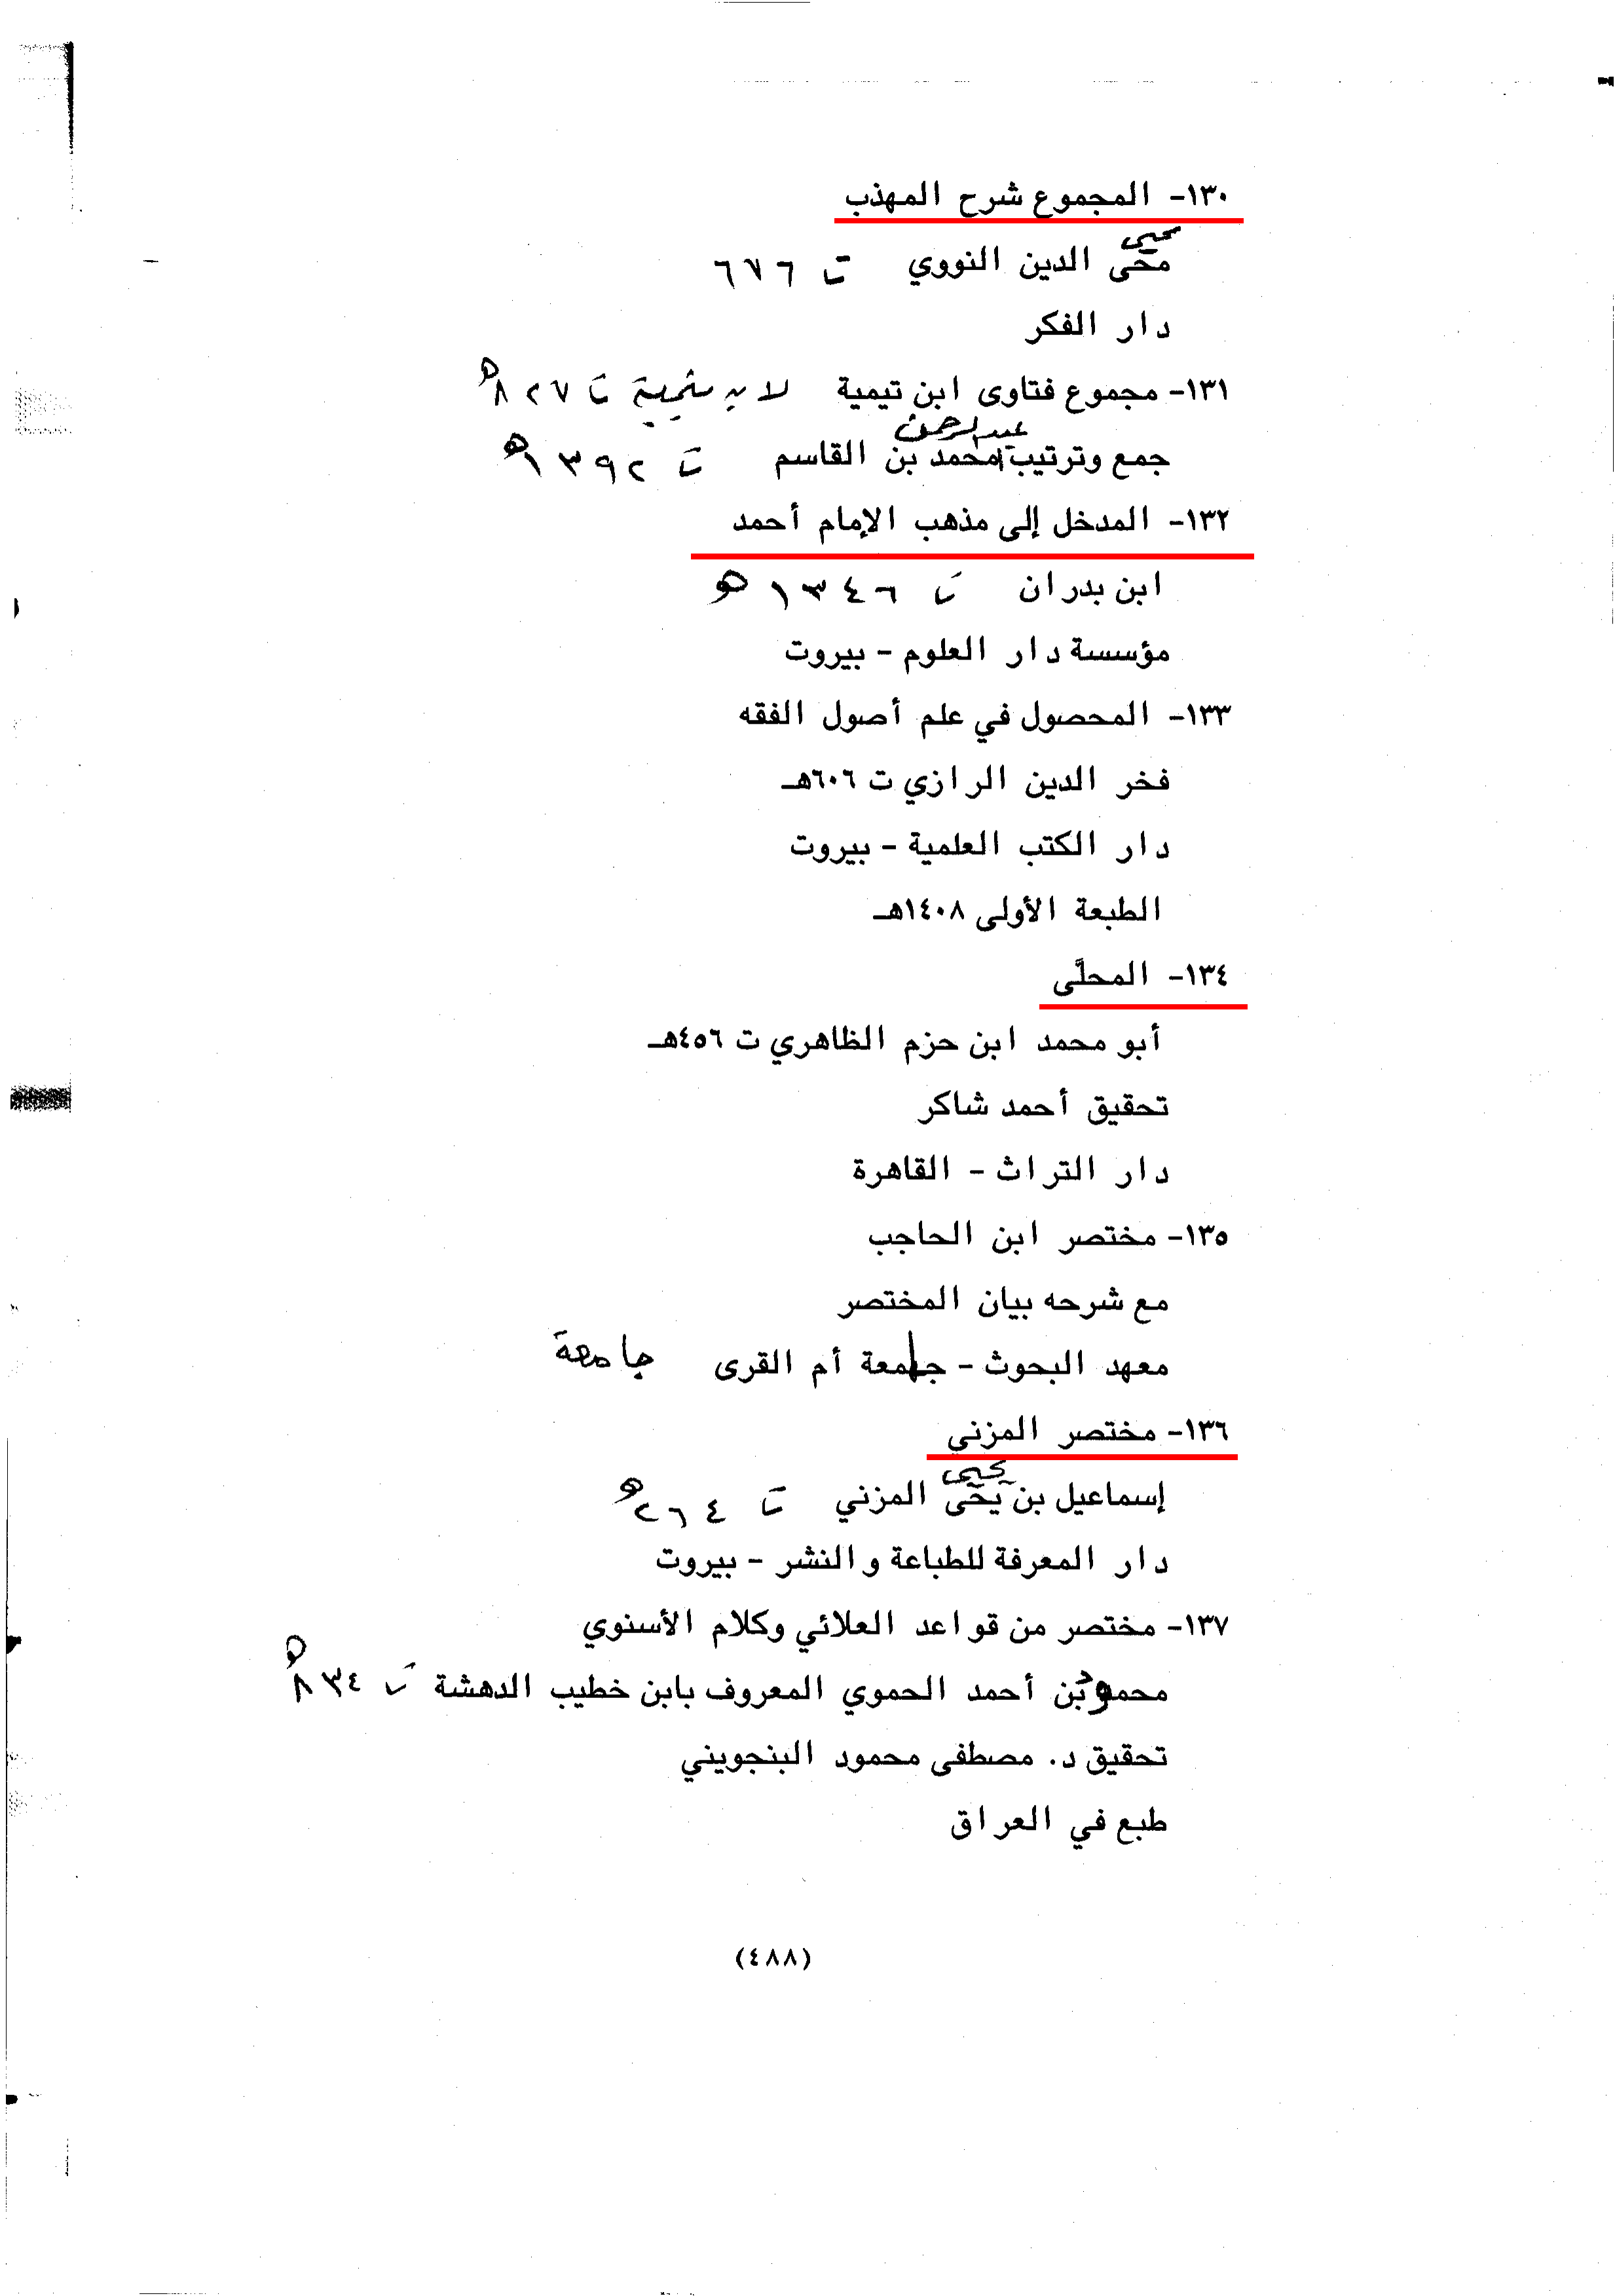 ١٣٠- المجموع شرح المهذب
يحيى
محى الدين النووي ت ٦٧٦
دار الفكر
١٣١- مجموع فتاوى ابن تيمية لابن تيمية ت ٨٢٧هـ
عبدالرحمن
جمع وترتيب محمد بن القاسم ت ١٣٩٢هـ
١٣٢- المدخل إلى مذهب الإمام أحمد
ابن بدران ت ١٣٤٦هـ
مؤسسة دار العلوم - بيروت
١٣٣- المحصول في علم أصول الفقه
فخر الدين الرازي ت ٦٠٦هـ
دار الكتب العلمية - بيروت
الطبعة الأولى ١٤٠٨هـ
١٣٤- المحلَّى
أبو محمد ابن حزم الظاهري ت ٤٥٦هـ
تحقيق أحمد شاكر
دار التراث - القاهرة
١٣٥- مختصر ابن الحاجب
مع شرحه بيان المختصر
معهد البحوث - جامعة أم القرى جامعة
١٣٦- مختصر المزني
يحيى
إسماعيل بن يحى المزني ت ٢٦٤هـ
دار المعرفة للطباعة والنشر - بيروت
١٣٧- مختصر من قواعد العلائي وكلام الأسنوي
محمود بن أحمد الحموي المعروف بابن خطيب الدهشة ت ٨٣٤هـ
تحقيق د. مصطفى محمود البنجويني
طبع في العراق
(٤٨٨)